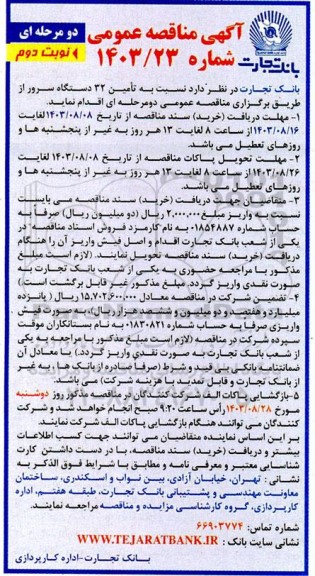 آگهی مناقصه عمومی
دو مرحله ای
شماره ۱۴۰۳/۲۳
نوبت دوم
بانک تجارت
بانک تجارت در نظر دارد نسبت به تأمین ۳۲ دستگاه سرور از
طریق برگزاری مناقصه عمومی دومرحله ای اقدام نماید.
۱- مهلت دریافت (خرید) سند مناقصه از تاریخ ۱۴۰۳/۰۸/۰۸ لغایت
۱۴۰۳/۰۸/۱۶ از ساعت ۸ لغایت ۱۳ هر روز به غیر از پنجشنبه ها و
روزهای تعطیل می باشد.
۲- مهلت تحویل پاکات مناقصه از تاریخ ۱۴۰۳/۰۸/۰۸ لغایت
۱۴۰۳/۰۸/۲۶ از ساعت ۸ لغایت ۱۳ هر روز به غیر از پنجشنبه ها و
روزهای تعطیل می باشد.
۳- متقاضیان جهت دریافت (خرید) سند مناقصه می بایست
نسبت به واریز مبلغ ۲,۰۰۰,۰۰۰ ریال (دو میلیون ریال) صرفا به
حساب شماره ۰۱۸۵۴۸۸۷ به نام کارمزد فروش اسناد مناقصه در
یکی از شعب بانک تجارت اقدام و اصل فیش واریز آن را هنگام
دریافت (خرید) سند مناقصه تحویل نمایند. (لازم است مبلغ
مذکور با مراجعه حضوری به یکی از شعب بانک تجارت به
صورت نقدی واریز گردد. مبلغ مذکور غیر قابل برگشت است.)
۴- تضمین شرکت در مناقصه معادل ۱۵,۷۰۲,۶۰۰,۰۰۰ ریال (پانزده
میلیارد و هفتصد و دو میلیون و ششصد هزار ریال)، به صورت فیش
واریزی صرفا به حساب شماره ۰۱۸۳۰۸۲۱ به نام بستانکاران موقت
سپرده شرکت در مناقصه (لازم است مبلغ مذکور با مراجعه به یکی
از شعب بانک تجارت به صورت نقدی واریز گردد.) یا معادل آن
ضمانتنامه بانکی بی قید و شرط (صرفا صادره از بانک ها، به غیر
از بانک تجارت و قابل تمدید با هزینه شرکت) می باشد.
۵- بازگشایی پاکات الف شرکت کنندگان در مناقصه مذکور روز دوشنبه
مورخ ۱۴۰۳/۰۸/۲۸ رأس ساعت ۹:۲۰ صبح انجام خواهد شد و شرکت
کنندگان می توانند هنگام بازگشایی پاکات الف شرکت نمایند.
بر این اساس نماینده متقاضیان می توانند جهت کسب اطلاعات
بیشتر و دریافت (خرید) سند مناقصه، با در دست داشتن کارت
شناسایی معتبر و معرفی نامه و مطابق با شرایط فوق الذکر به
نشانی: تهران، خیابان آزادی، بین نواب و اسکندری، ساختمان
معاونت مهندسی و پشتیبانی بانک تجارت، طبقه هفتم، اداره
کارپردازی، گروه کارشناسی مزایده و مناقصه مراجعه نمایند.
شماره تماس: ۶۶۹۰۳۷۷۴
نشانی سایت بانک: WWW.TEJARATBANK.IR
بانک تجارت-اداره کارپردازی